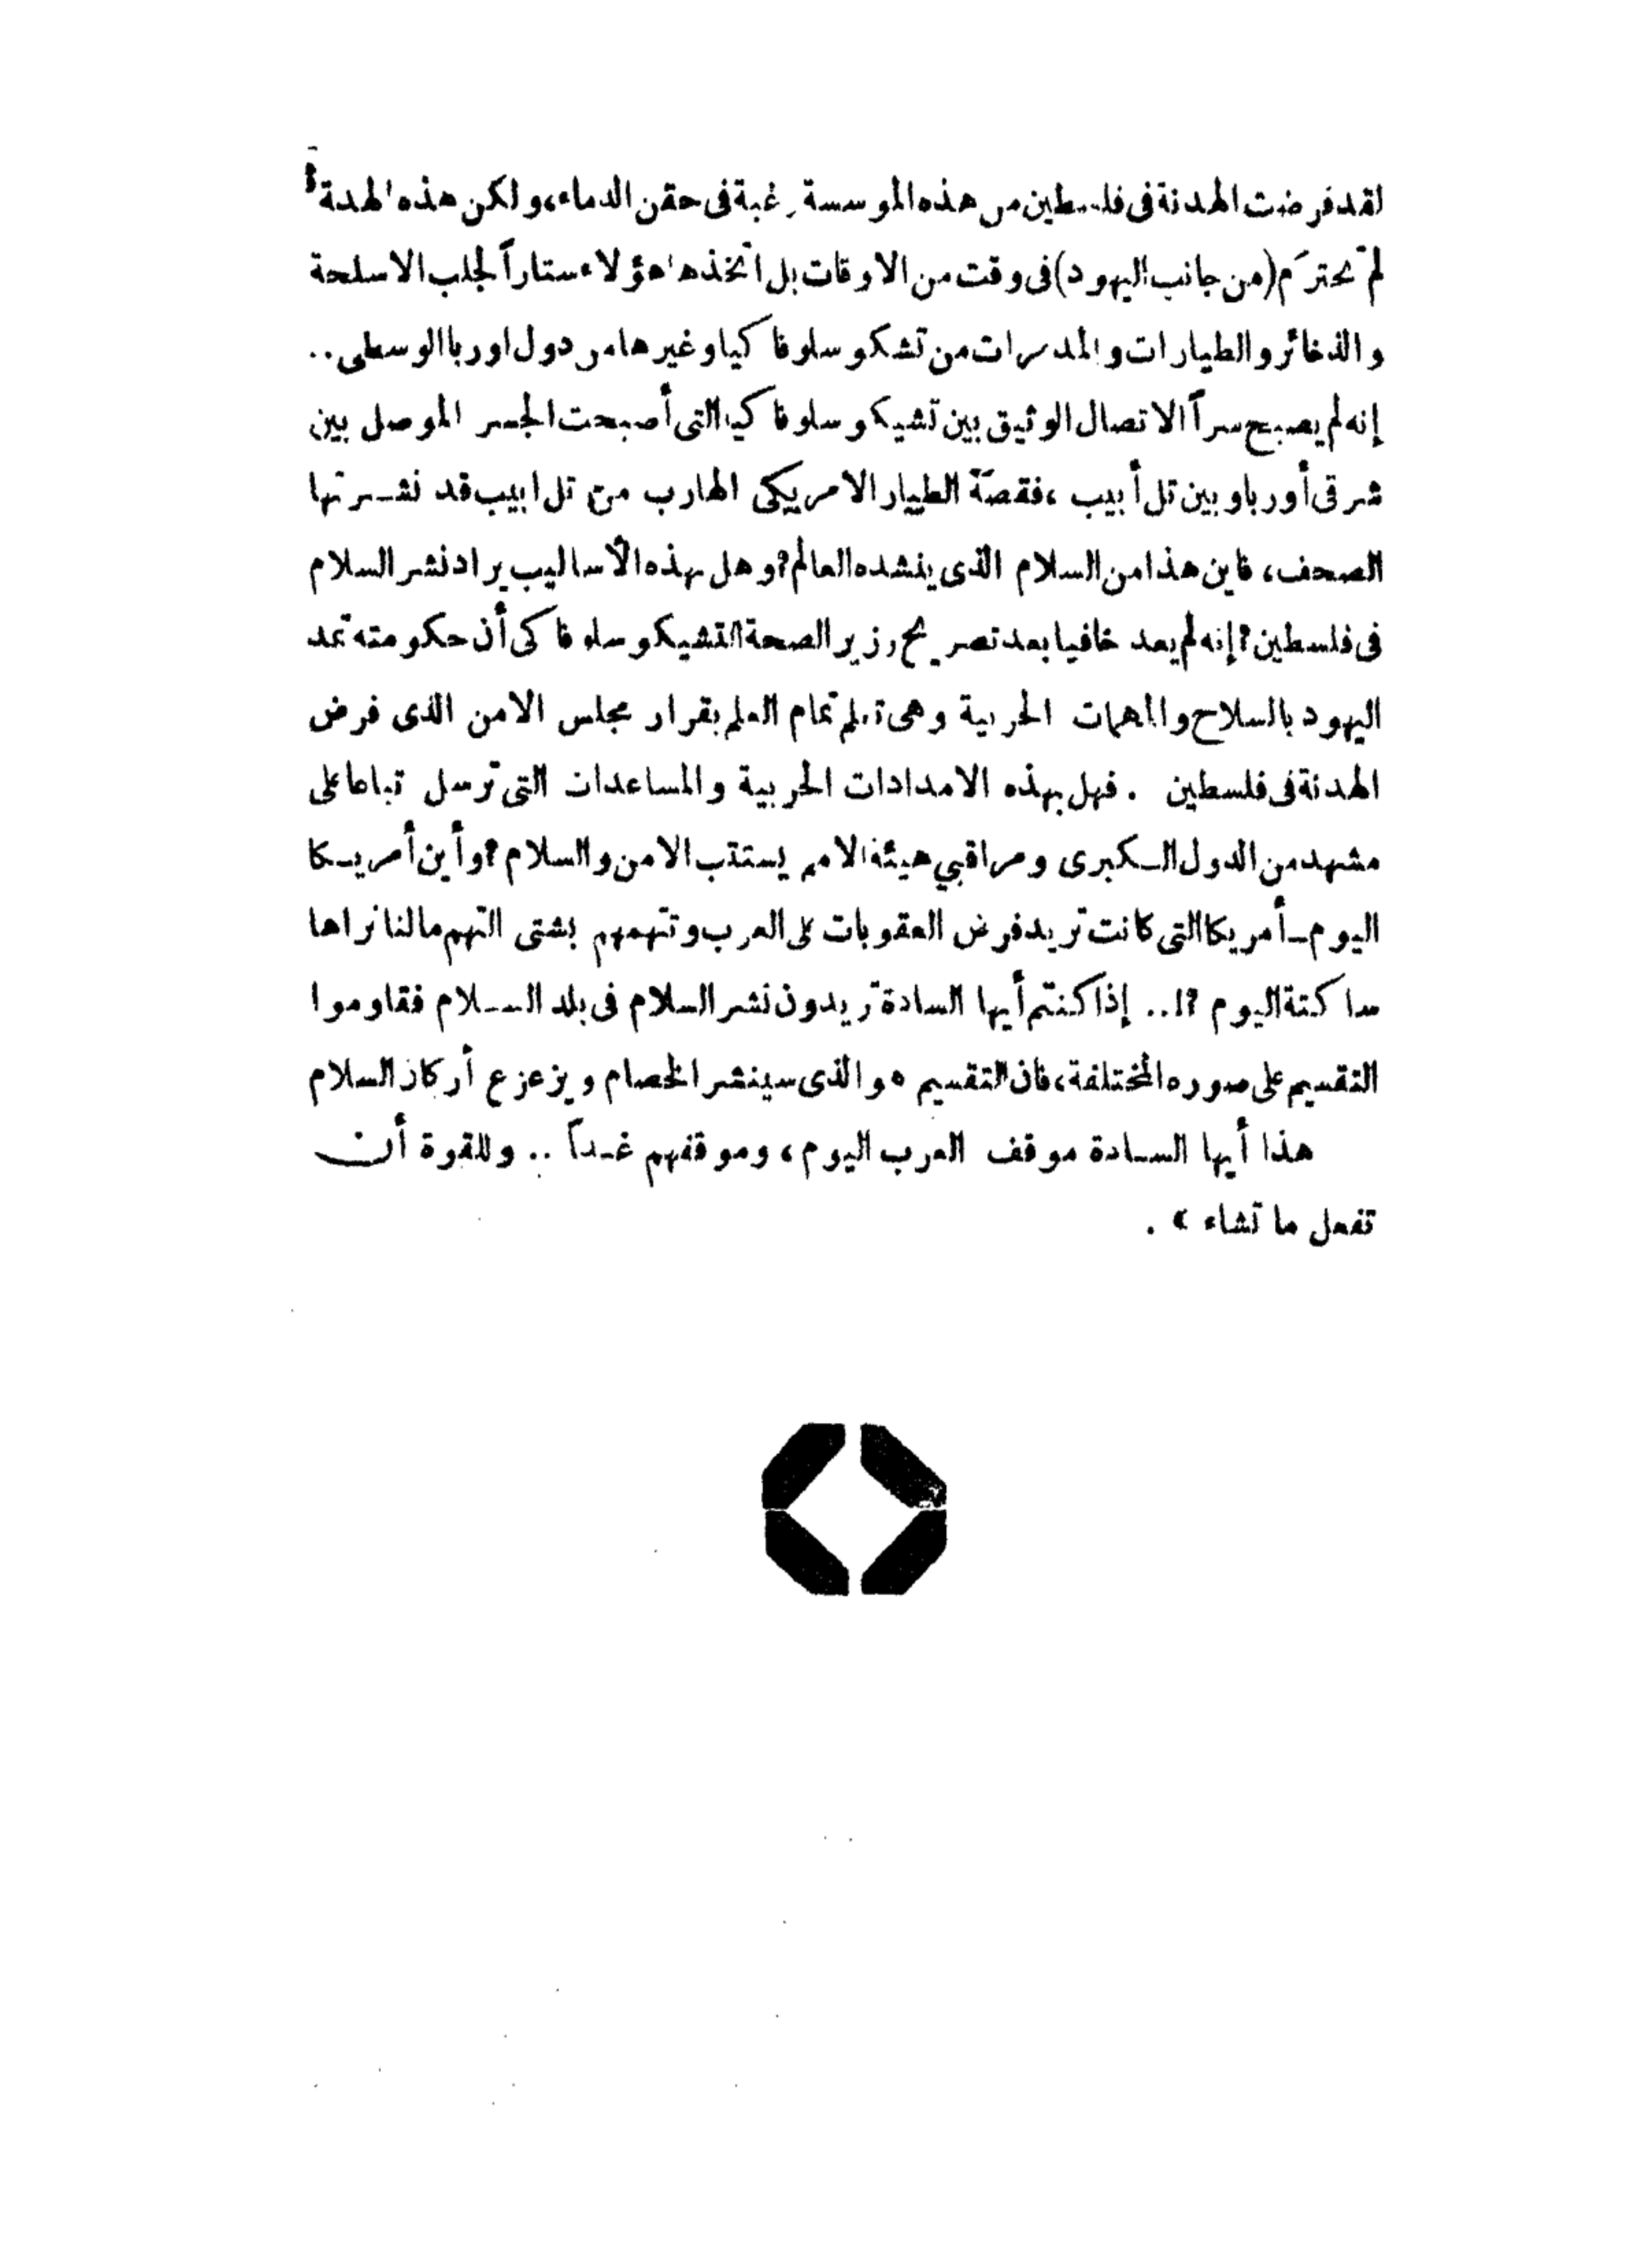 لقد فرضت الهدنة فى فلسطين من هذه الموسسة رغبة فى حقن الدماء، ولكن هذه الهدنة
لم تحترَم (من جانب اليهود) فى وقت من الاوقات بل اتخذها هؤلاء ستاراً لجلب الاسلحة
والذخائر والطيارات والمدمرات من تشكوسلوفاكيا وغيرها من دول اوربا الوسطى ..
إنه لم يصبح سراً الاتصال الوثيق بين تشيكوسلوفاكيا التى أصبحت الجسر الموصل بين
شرقى أوربا وبين تل أبيب ، فقصّة الطيار الامريكى الهارب من تل ابيب قد نشرتها
الصحف، فاين هذا من السلام الذى ينشده العالم؟ وهل بهذه الأساليب يراد نشر السلام
فى فلسطين؟ إنه لم يعد خافيا بعد تصريح وزير الصحة التشيكوسلوفاكى أن حكومته تمد
اليهود بالسلاح والمهمات الحربية وهى تعلم تمام العلم بقرار مجلس الامن الذى فرض
الهدنة فى فلسطين . فهل بهذه الامدادات الحربية والمساعدات التى ترسل تباعا على
مشهد من الدول الكبرى ومراقبي هيئة الامم يستتب الامن والسلام؟ وأين أمريكا
اليوم ـ أمريكا التى كانت تريد فرض العقوبات على العرب وتتهمهم بشتى التهم مالنا نراها
ساكتة اليوم ؟! .. إذا كنتم أيها السادة تريدون نشر السلام فى بلد السلام فقاوموا
التقسيم على صوره المختلفة، فان التقسيم هو الذى سينشر الخصام ويزعزع أركان السلام
هذا أيها السادة موقف العرب اليوم، وموقفهم غداً .. وللقوة أن
تفعل ما تشاء » .